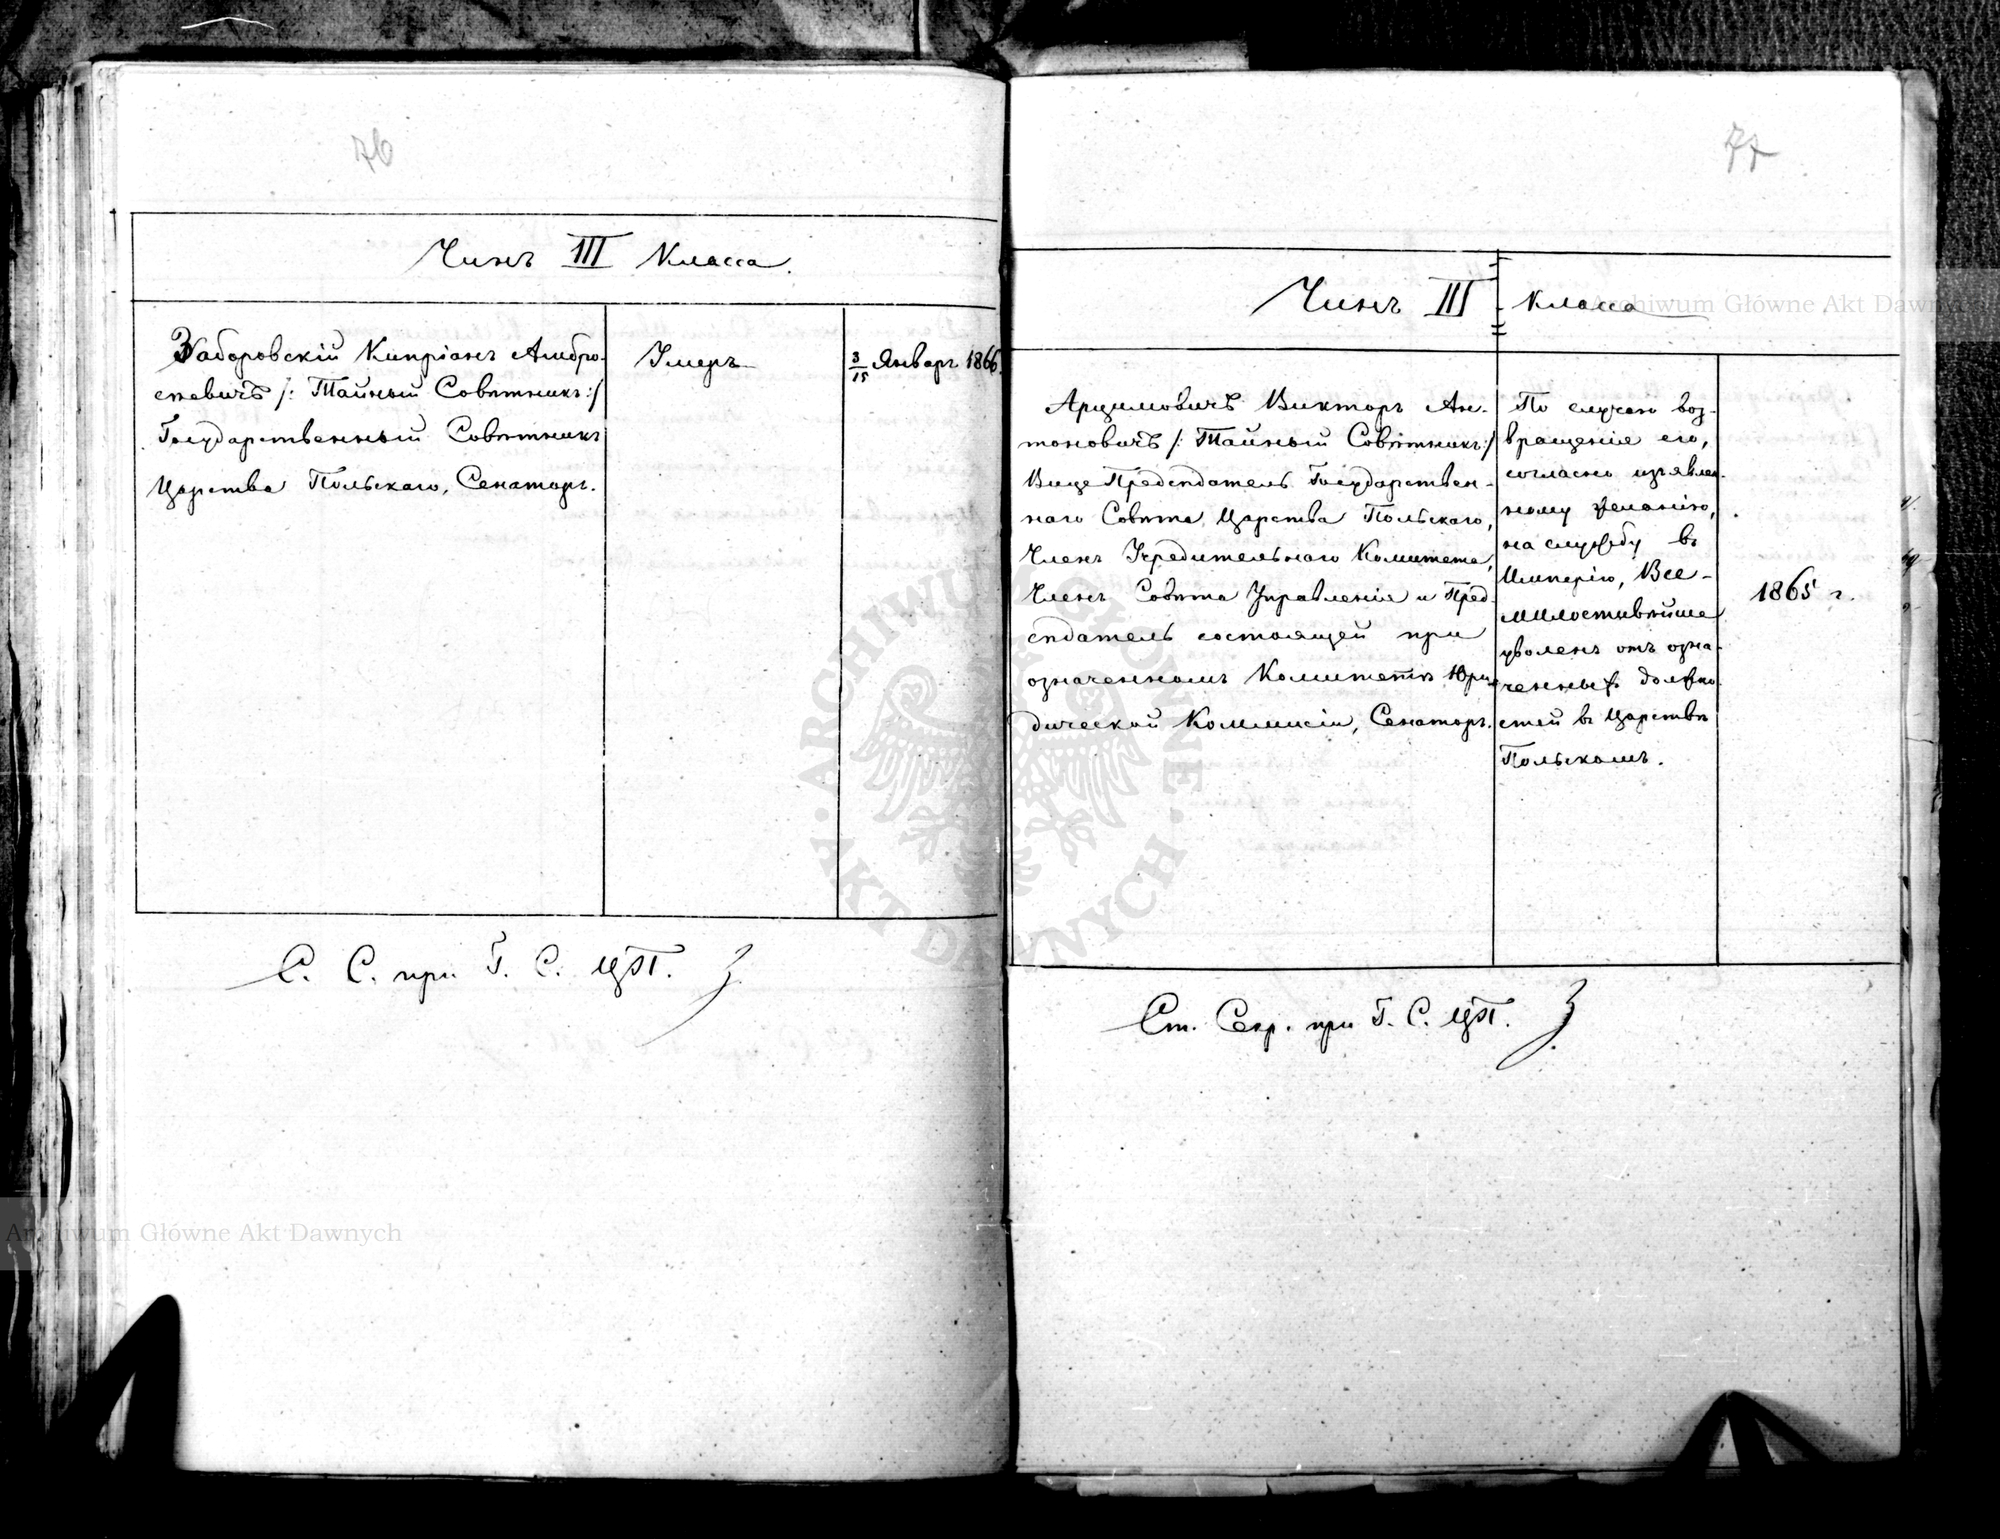 76
Чинъ III Класса.
Заборовскій Кипріанъ Амбро-
жевичъ /: Тайный Совѣтникъ :/
Государственный Совѣтникъ
Царства Польскаго, Сенаторъ.
Умеръ
3/15 Январ 1866.
С. С. при Г. С. ЦП.
77
Чинъ III класса
Арцимовичъ Викторъ Ан-
тоновичъ /: Тайный Совѣтникъ :/
Вице Предсѣдатель Государствен-
наго Совѣта Царства Польскаго,
Членъ Учредительнаго Комитета,
Членъ Совѣта Управленія и Пред-
сѣдатель состоящей при
означенномъ Комитетѣ Юри-
дической Коммисіи, Сенаторъ.
По случаю воз-
вращенія его,
согласно изъявлен-
ному желанію,
на службу въ
Имперію, Все-
милостивѣйше
уволенъ отъ озна-
ченныхъ должно-
стей въ Царствѣ
Польскомъ.
1865 г.
Ст. Секр. при Г. С. ЦП.
Archiwum Główne Akt Dawnych
Archiwum Główne Akt Dawnych
ARCHIWUM GŁÓWNE AKT DAWNYCH